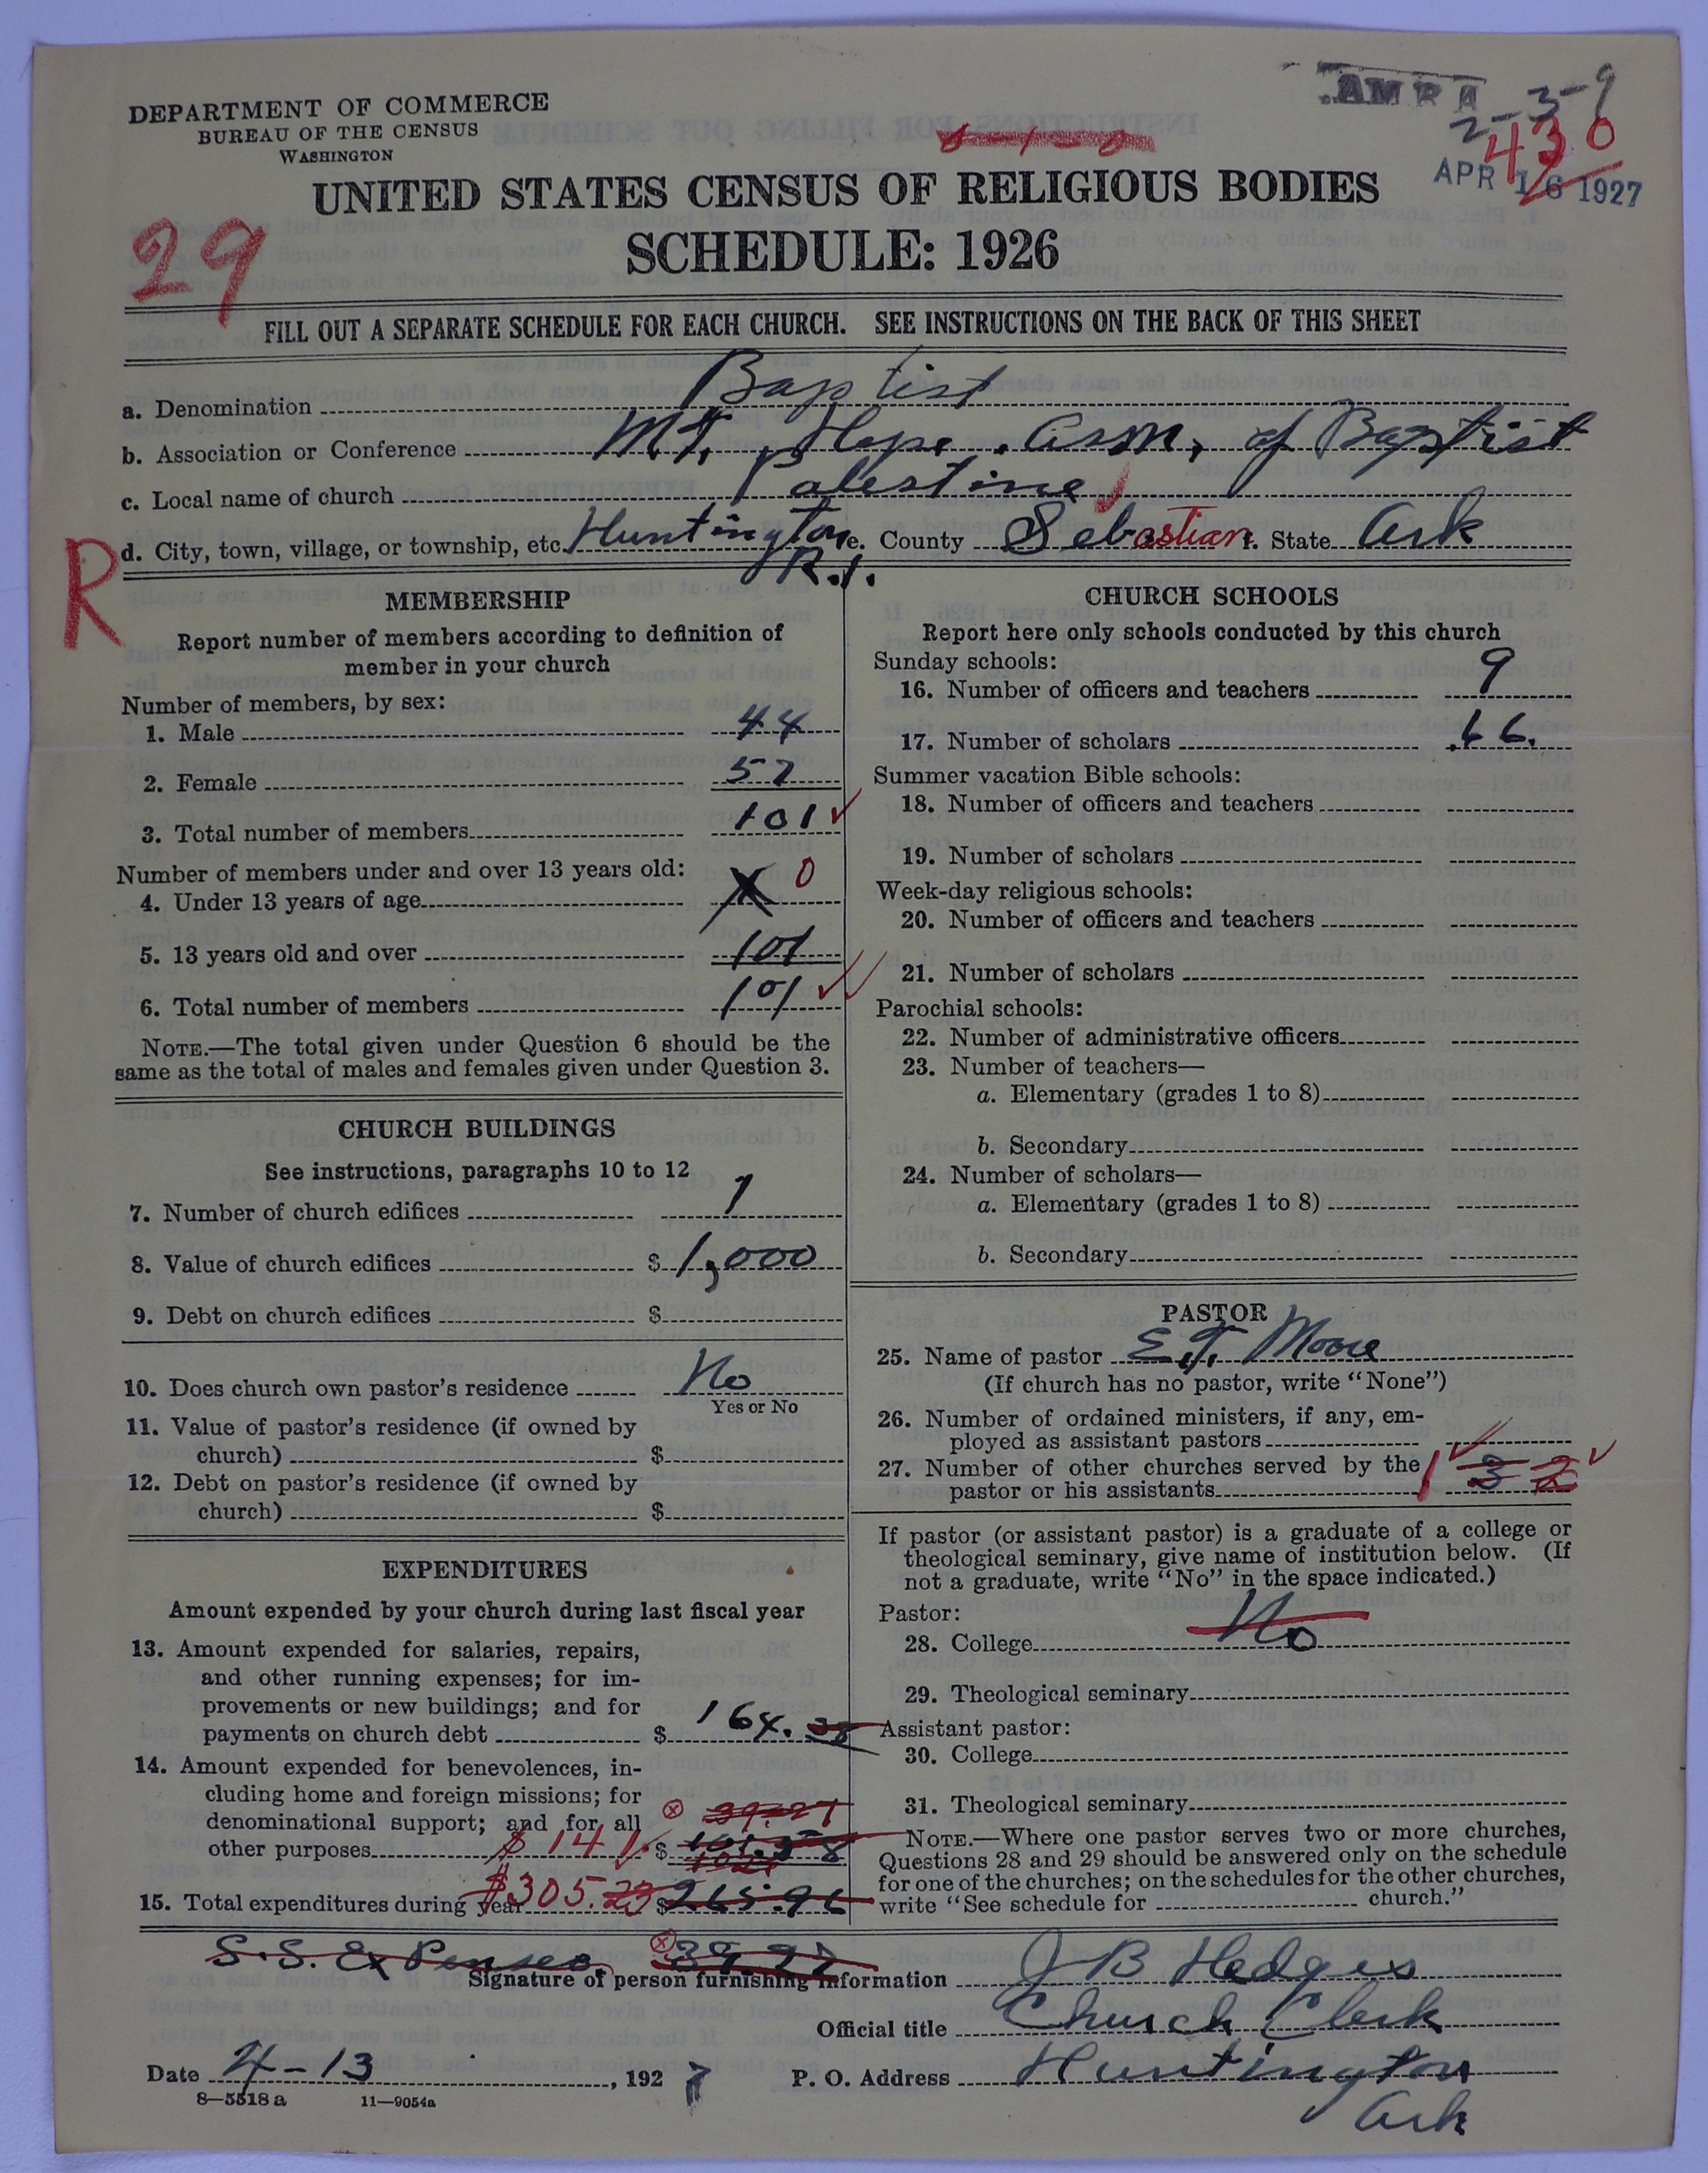 DEPARTMENT OF COMMERCE
BUREAU OF THE CENSUS
WASHINGTON
AMBA
2-3-9
430
APR 16 1927
UNITED STATES CENSUS OF RELIGIOUS BODIES
SCHEDULE: 1926
29
FILL OUT A SEPARATE SCHEDULE FOR EACH CHURCH. SEE INSTRUCTIONS ON THE BACK OF THIS SHEET
a. Denomination Baptist
b. Association or Conference Mt. Hope. Assn, of Baptist
c. Local name of church Palestine
R
d. City, town, village, or township, etc. Huntington e. County Sebastian f. State Ark
R.1.
MEMBERSHIP
Report number of members according to definition of
member in your church
Number of members, by sex:
1. Male 44
2. Female 57
3. Total number of members 101
Number of members under and over 13 years old:
4. Under 13 years of age X 0
5. 13 years old and over 101
6. Total number of members 101
NOTE.—The total given under Question 6 should be the
same as the total of males and females given under Question 3.
CHURCH BUILDINGS
See instructions, paragraphs 10 to 12
7. Number of church edifices 1
8. Value of church edifices $ 1,000
9. Debt on church edifices $
10. Does church own pastor's residence No
Yes or No
11. Value of pastor's residence (if owned by
church) $
12. Debt on pastor's residence (if owned by
church) $
EXPENDITURES
Amount expended by your church during last fiscal year
13. Amount expended for salaries, repairs,
and other running expenses; for im-
provements or new buildings; and for
payments on church debt $ 164. 38
14. Amount expended for benevolences, in-
cluding home and foreign missions; for
denominational support; and for all 39.27
other purposes $ 141 $ 101.58
15. Total expenditures during year $305.23 $ 265.96
CHURCH SCHOOLS
Report here only schools conducted by this church
Sunday schools:
16. Number of officers and teachers 9
17. Number of scholars 66.
Summer vacation Bible schools:
18. Number of officers and teachers
19. Number of scholars
Week-day religious schools:
20. Number of officers and teachers
21. Number of scholars
Parochial schools:
22. Number of administrative officers
23. Number of teachers—
a. Elementary (grades 1 to 8)
b. Secondary
24. Number of scholars—
a. Elementary (grades 1 to 8)
b. Secondary
PASTOR
25. Name of pastor E.T. Moore
(If church has no pastor, write "None")
26. Number of ordained ministers, if any, em-
ployed as assistant pastors
27. Number of other churches served by the
pastor or his assistants 1 3 2
If pastor (or assistant pastor) is a graduate of a college or
theological seminary, give name of institution below. (If
not a graduate, write "No" in the space indicated.)
Pastor:
28. College No
29. Theological seminary
Assistant pastor:
30. College
31. Theological seminary
NOTE.—Where one pastor serves two or more churches,
Questions 28 and 29 should be answered only on the schedule
for one of the churches; on the schedules for the other churches,
write "See schedule for church."
S.S. Expenses. 39.27
Signature of person furnishing information J B Hedges
Official title Church Clerk
Date 4-13, 1927 P. O. Address Huntington
Ark
8—5518 a 11—9054a